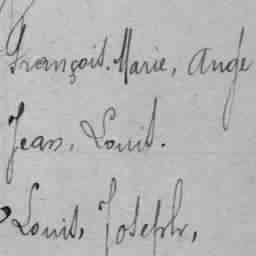 François. Marie, Ange
Jean, Louis.
Louis, Joseph,